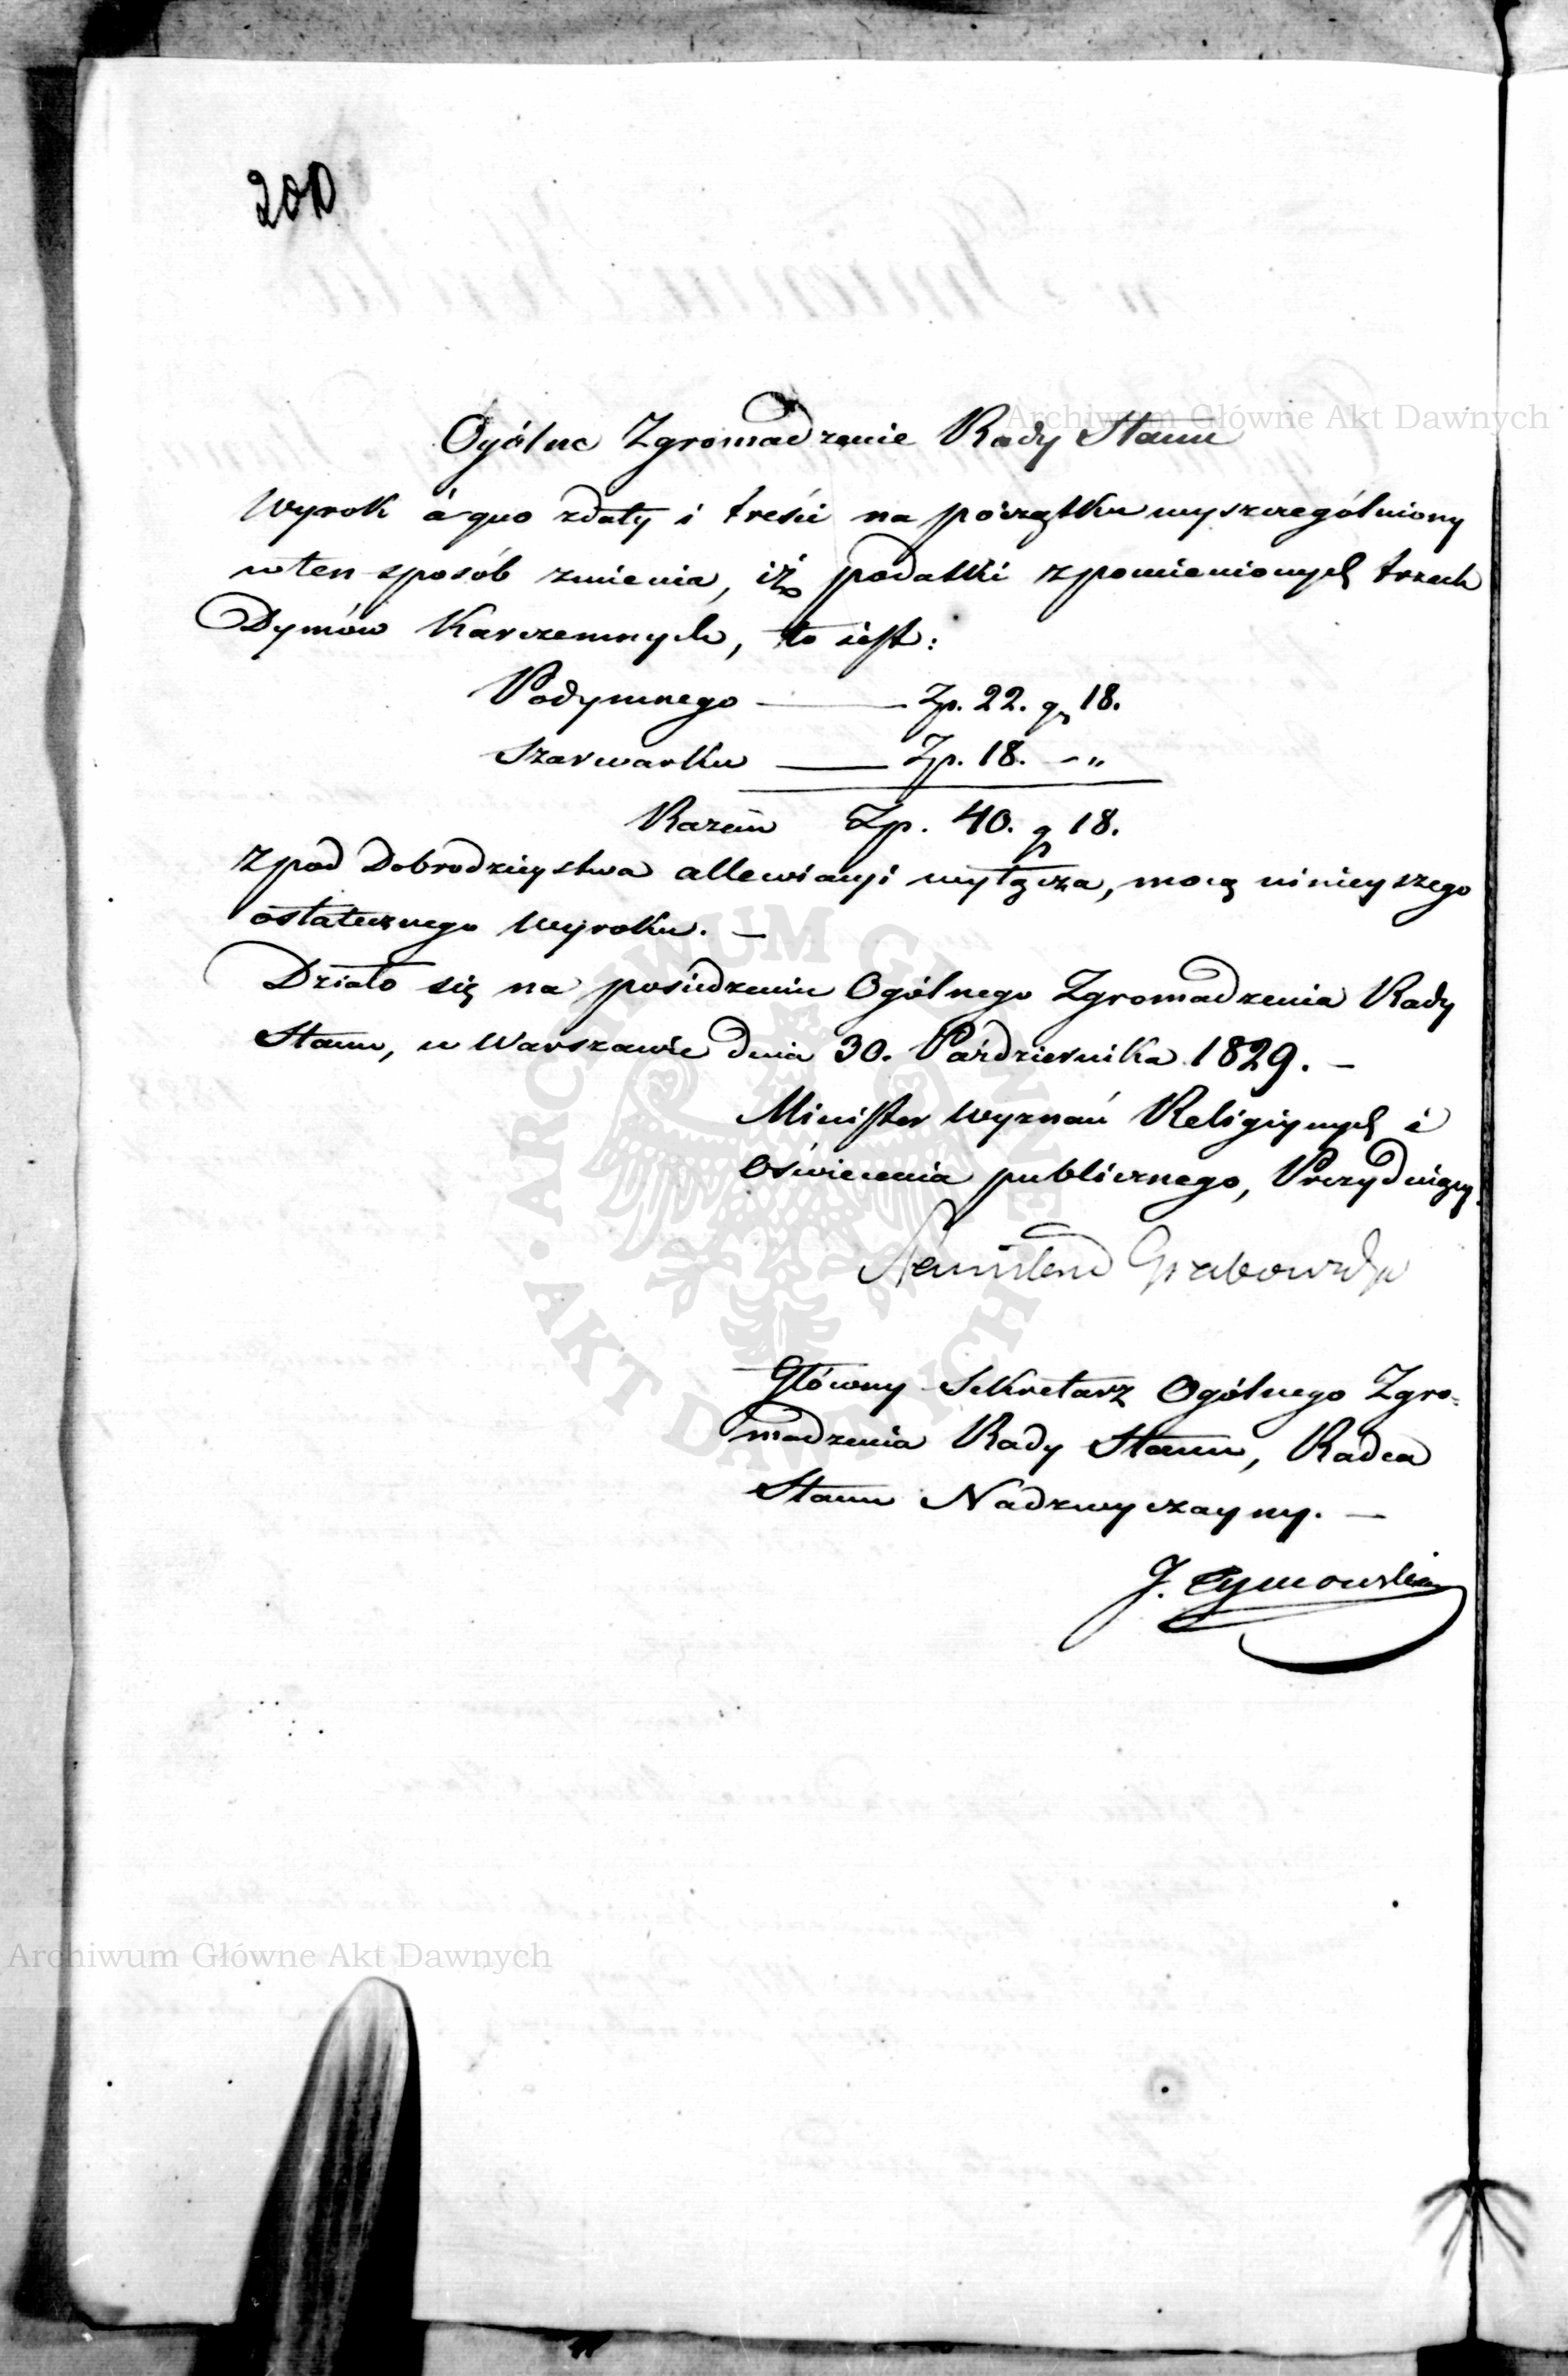 200
Archiwum Główne Akt Dawnych
Ogólne Zgromadzenie Rady Stanu
Wyrok á quo zdaty i treści na początku wyszczególniony
w ten sposób zmienia, iż podatki z pomienionych trzech
Dymów Karczemnych, to iest:
Podymnego —— Zp. 22. gr 18.
Szarwarku —— Zp. 18. - "
Razem Zp. 40. gr 18.
z pod Dobrodzieystwa allewiacyi wyłącza, mocą ninieyszego
ostatecznego Wyroku. —
Działo się na posiedzeniu Ogólnego Zgromadzenia Rady
Stanu, w Warszawie dnia 30. Października 1829. —
Minister Wyznań Religiynych i
Oświecenia publicznego, Prezyduiący.
Stanisław Grabowski
Główny Sekretarz Ogólnego Zgro=
madzenia Rady Stanu, Radca
Stanu Nadzwyczayny. —
J. Tymowski
ARCHIWUM GŁÓWNE AKT DAWNYCH
Archiwum Główne Akt Dawnych